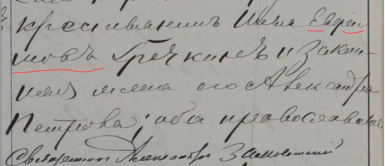 крестьянинъ Илья Евфи
мовъ Гречкинъ и закон
ная жена его Александра
Петрова; оба православные
Священникъ Александръ